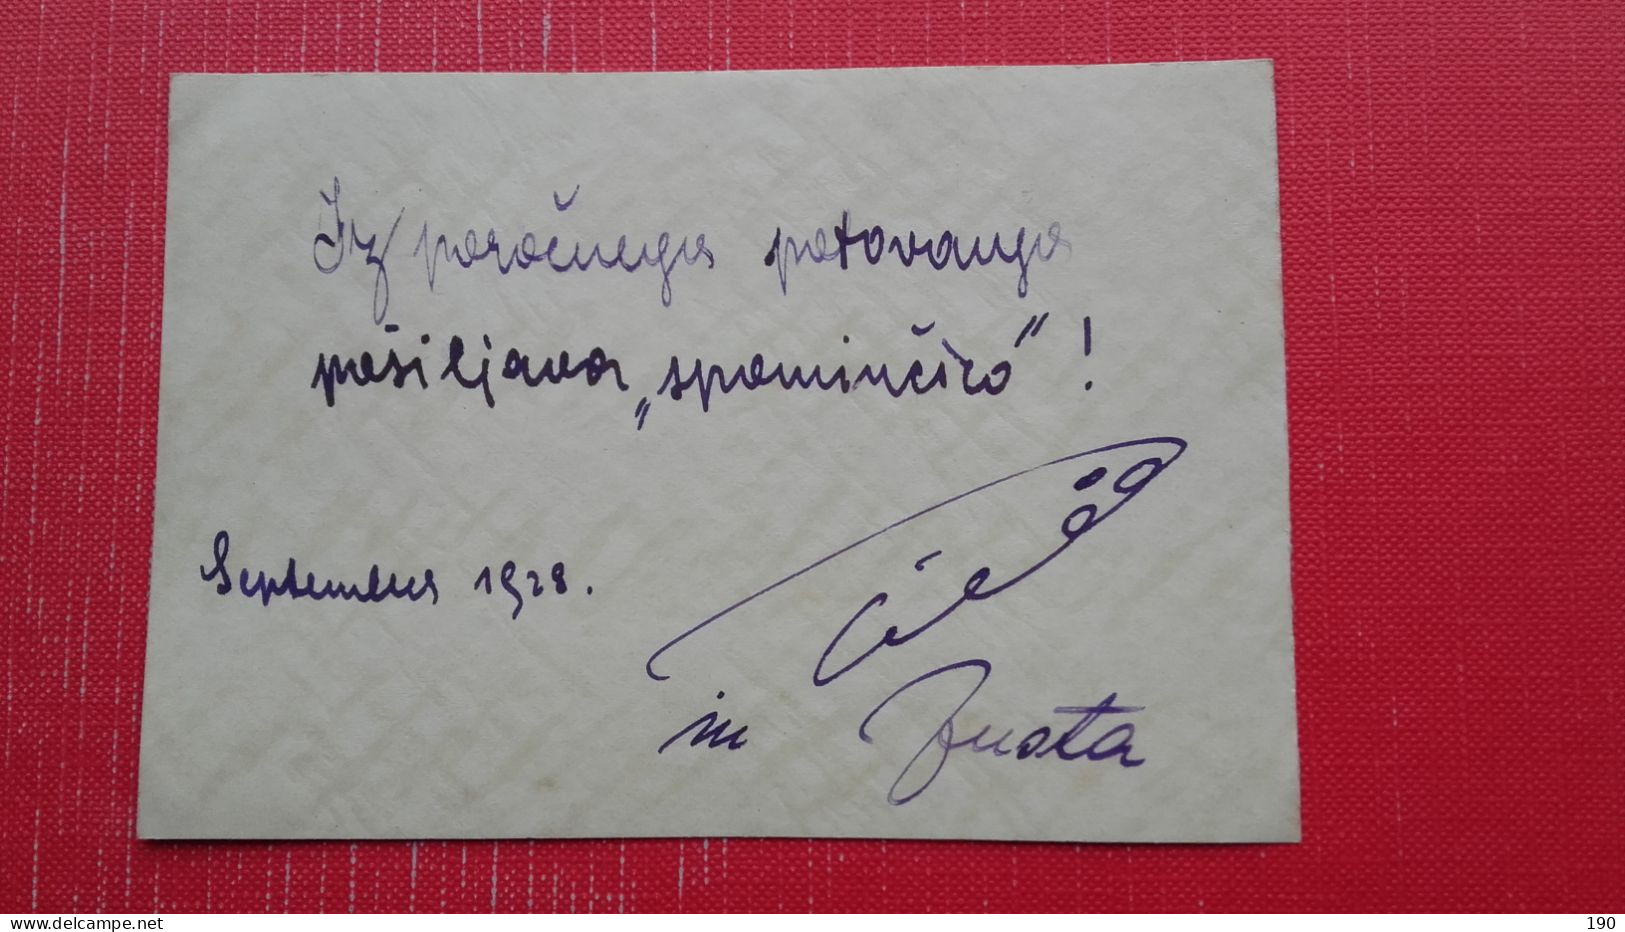 Iz poročnega potovanja
pošiljava „spominčico"!
September 1928.
in Justa
www.delcampe.net
190